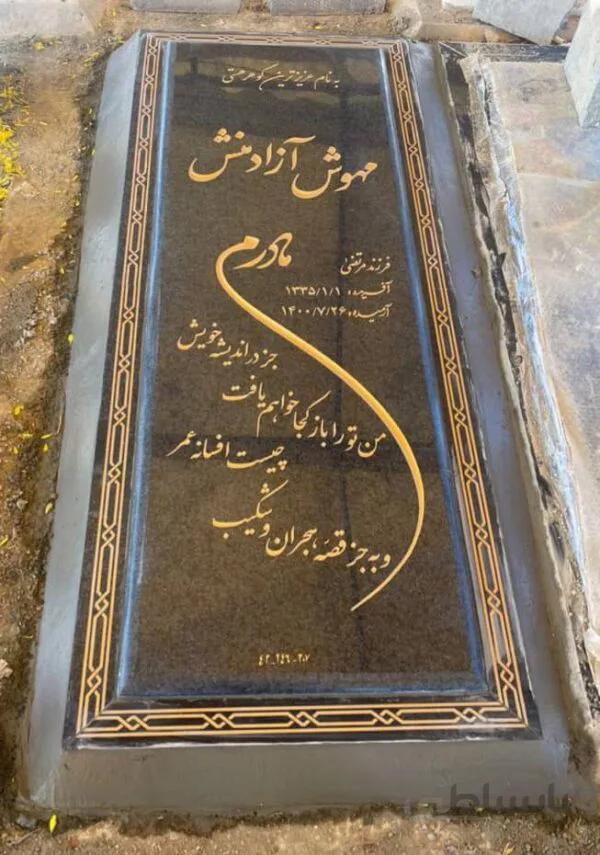 به نام عزیزترین گوهر هستی
مهوش آزادمنش
مادرم
فرزند مرتضی
آفریده: ۱۳۳۵/۱/۱
آرمیده: ۱۴۰۰/۷/۲۶
جز در اندیشه خویش
من تو را باز کجا خواهم یافت
چیست افسانه عمر
و به جز قصه هجران و شکیب
۴۲-۲۴۶-۲۰۷
باسلط